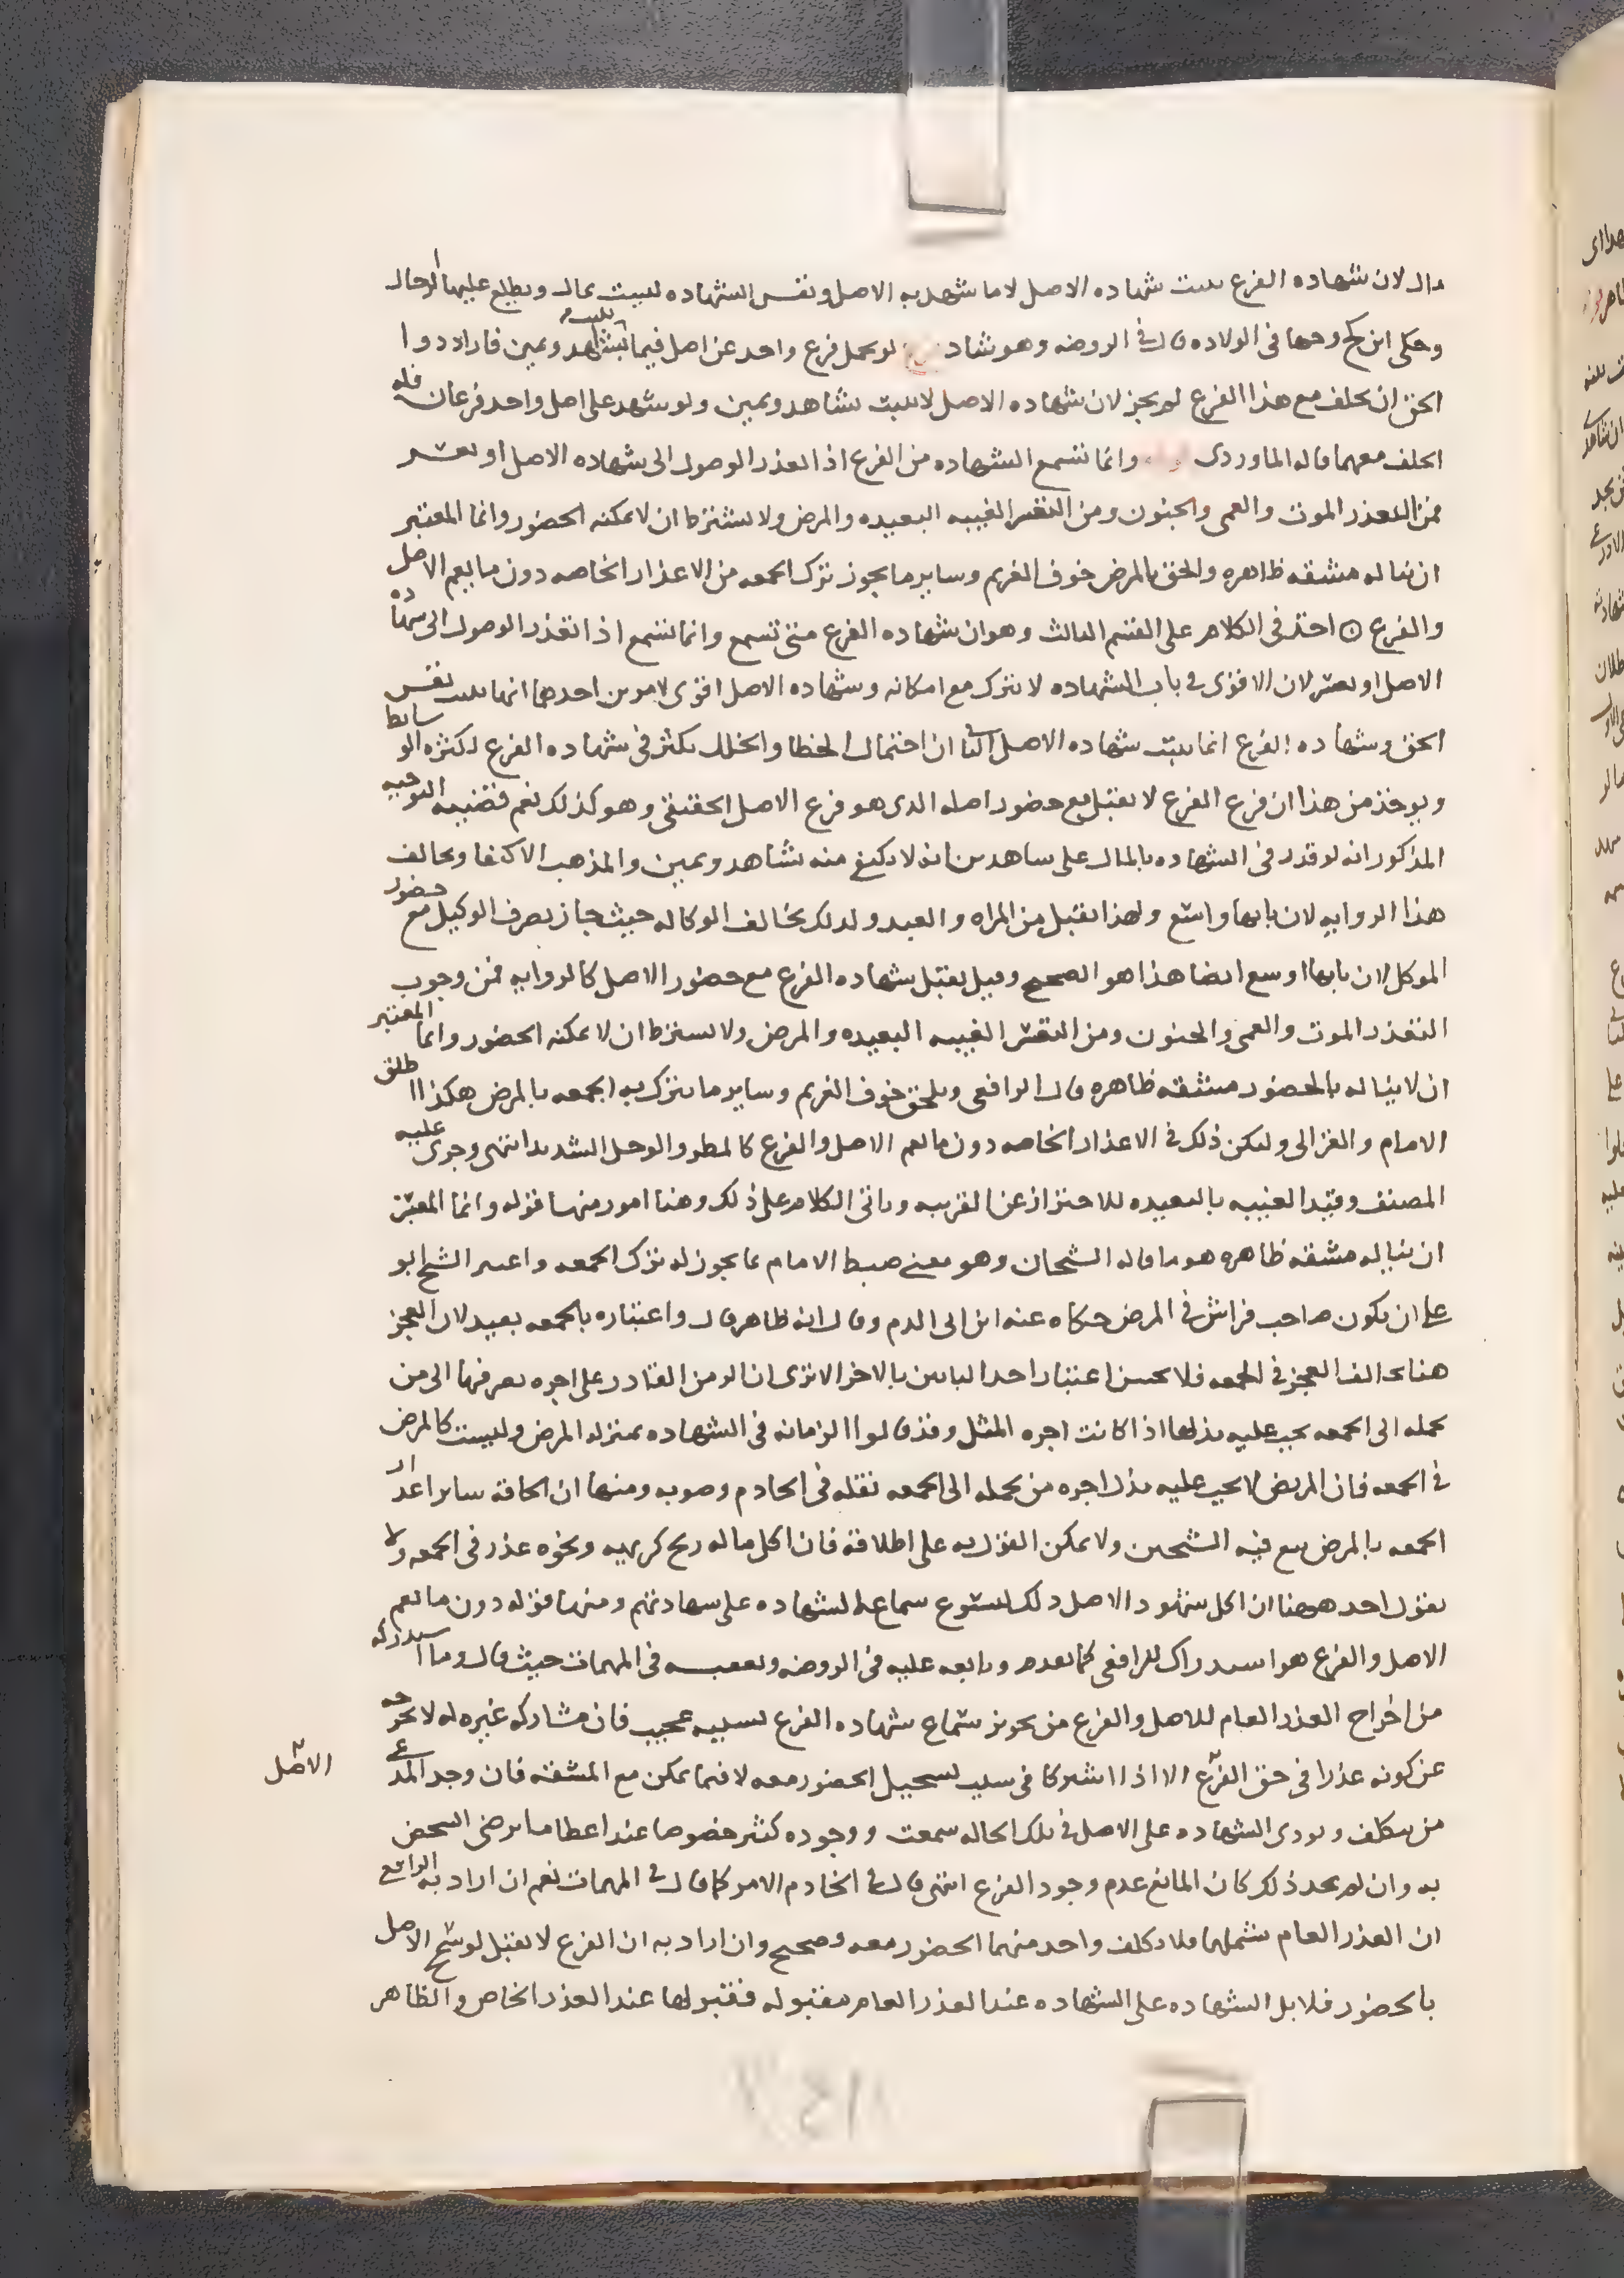 مال لان شهاده الفرع تثبت شهاده الاصل لا ما شهد به الاصل ونفس الشهاده ليست بمال ويطلع عليها الرجال
وحكى ابن كج وجها في الولاده قال في الروضه وهو شاذ لو تحمل فرع واحد عن اصل فيما يثبت بشاهد ويمين فاراد ذوا
الحق ان يحلف مع هذا الفرع لم يجز لان شهاده الاصل لا تثبت بشاهد ويمين ولو شهد على اصل واحد فرعان فله
الحلف معهما قاله الماوردى وانما تسمع الشهاده من الفرع اذا تعذر الوصول الى شهاده الاصل او تعسر
فمن التعذر الموت والعمى والجنون ومن التعسر الغيبه البعيده والمرض ولا يشترط ان لا يمكنه الحضور وانما المعتبر
ان يناله مشقه ظاهره والحق بالمرض خوف الغريم وساير ما يجوز ترك الجمعه من الاعذار الخاصه دون ما يعم الاصل
والفرع ۞ اخذ في الكلام على القسم الثالث وهو ان شهاده الفرع متى تسمع وانما تسمع اذا تعذر الوصول الى شهاده
الاصل او تعسر لان الاقوى في باب الشهاده لا يترك مع امكانه وشهاده الاصل اقوى لامرين احدهما انها تثبت نفس
الحق وشهاده الفرع انما تثبت شهاده الاصل الثاني ان احتمال الخطا والخلل يكثر في شهاده الفرع لكثره الوسايط
ويوخذ من هذا ان فرع الفرع لا يقبل مع حضور اصله الذى هو فرع الاصل الحقيقى وهو كذلك نعم قضيه التوجيه
المذكور انه لو قدر في الشهاده بالمال على شاهدين انه لا يكتفي منه بشاهد ويمين والمذهب الاكتفا ويخالف
هذا الروايه لان بابها واسع ولهذا تقبل من المراه والعبد ولذلك يخالف الوكاله حيث جاز تصرف الوكيل مع حضور
الموكل لان بابها اوسع ايضا هذا هو الصحيح وقيل يقبل شهاده الفرع مع حضور الاصل كالروايه فمن وجوب
التعذر الموت والعمى والجنون ومن التعسر الغيبه البعيده والمرض ولا يشترط ان لا يمكنه الحضور وانما المعتبر
ان لا يناله بالحضور مشقه ظاهره قال الرافعى ويلحق خوف الغريم وساير ما يترك به الجمعه بالمرض هكذا اطلق
الامام والغزالى وليكن ذلك في الاعذار الخاصه دون ما يعم الاصل والفرع كالمطر والوحل الشديد انتهى وجرى عليه
المصنف وقيد الغيبه بالبعيده للاحتراز عن القريبه وياتى الكلام على ذلك وهنا امور منها قوله وانما المعتبر
ان يناله مشقه ظاهره هو ما قاله الشيخان وهو معنى ضبط الامام بما يجوز له ترك الجمعه واعتبر الشيخ ابو
على ان يكون صاحب فراش في المرض حكاه عنه ابن ابى الدم وقال انه ظاهر قال واعتباره بالجمعه بعيد لان العجز
هنا يخالف العجز في الجمعه فلا يحسن اعتبار احد البابين بالاخر الا ترى ان الزمن القادر على اجره يصرفها الى من
يحمله الى الجمعه يجب عليه بذلها اذا كانت اجره المثل وقد قالوا الزمانه في الشهاده بمنزله المرض وليست كالمرض
في الجمعه فان المريض لا يجب عليه بذل اجره من يحمله الى الجمعه نقله في الخادم وصوبه ومنها ان الحاقه ساير اعذار
الجمعه بالمرض تبع فيه الشيخين ولا يمكن القول به على اطلاقه فان اكل ما له ريح كريهه ونحوه عذر في الجمعه ولا
يقول احد ههنا ان اكل شهود الاصل ذلك يسوغ سماع الشهاده على شهادتهم ومنها قوله دون ما يعم
الاصل والفرع هو استدراك للرافعى كما تقدم وتابعه عليه في الروضه وتعقبه في المهمات حيث قال وما استدركه
من اخراج العذر العام للاصل والفرع من تجويز سماع شهاده الفرع لسببه عجيب فان مشاركه غيره له لا تخرجه
عن كونه عذرا في حق الفرع الا اذا اشتركا في سبب تستحيل الحضور معه لا فيما يمكن مع المشقه فان وجد المدعى
الاصل
من يتكلف ويودى الشهاده على الاصل في تلك الحاله سمعت ووجوده كثير خصوصا عند اعطا ما يرضى الشخص
به وان لم يجد ذلك كان المانع عدم وجود الفرع انتهى قال في الخادم الامر كما قال في المهمات نعم ان اراد به الرافعى
ان العذر العام يشملهما فلا يكلف واحد منهما الحضور معه وصحيح وان اراد به ان الفرع لا يقبل لو سمح الاصل
بالحضور فلا بل الشهاده على الشهاده عند العذر العام مقبوله فقبولها عند العذر الخاص والظاهر